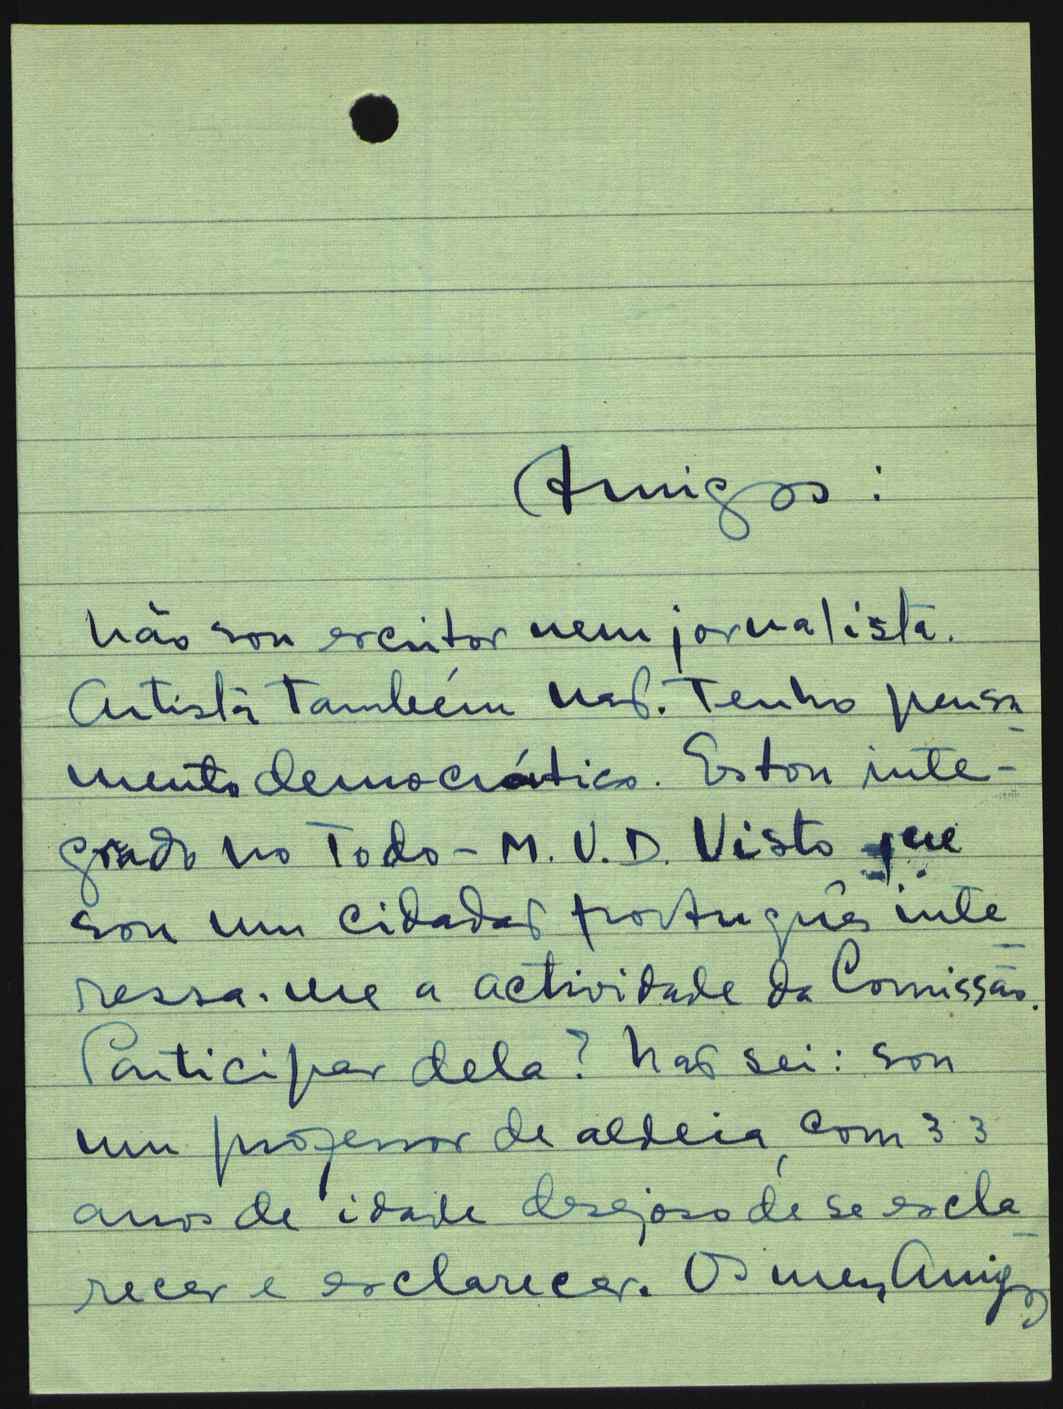 Amigos:
Não sou escritor nem jornalista.
Artista também não. Tenho pensa-
mento democrático. Estou inte-
grado no Todo - M. V. D. Visto que
sou um cidadão português inte-
ressa-me a actividade da Comissão.
Participar dela? Não sei: sou
um professor de aldeia, com 33
anos de idade desejoso de se escla-
recer e esclarecer. Os meus Amigos